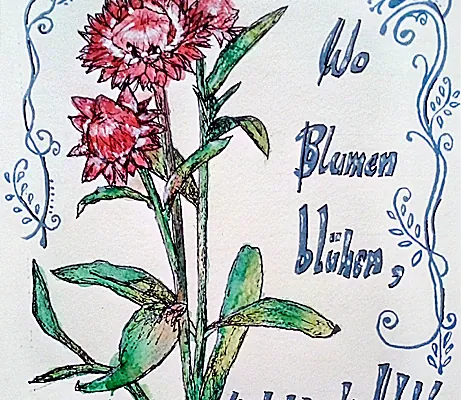 Wo
Blumen
blühen,